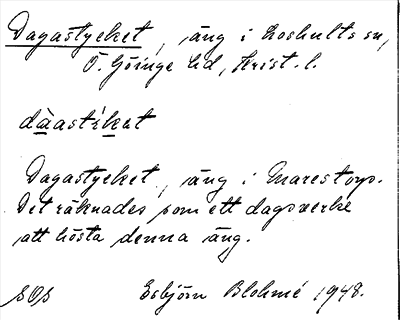 Dagastycket, äng i Loshults sn,
Ö. Göinge hd, Krist. l.
dàastýkat
Dagastycket, äng i Marestorp.
Det räknades som ett dagsverke
att hösta denna äng.
SOS Esbjörn Blohmé 1948.